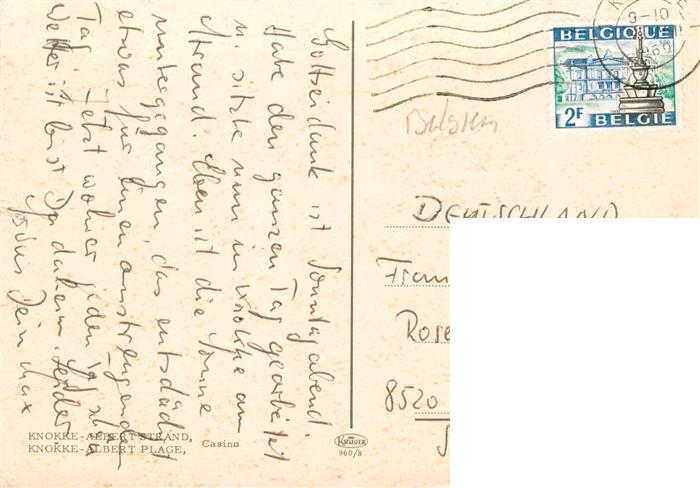 Gottseidank ist Sonntagabend.
Habe den ganzen Tag gearbeitet
u. sitze nun in Knokke am
Strand. Eben ist die Sonne
untergegangen, das entschädigt
etwas für einen anstrengenden
Tag. Jetzt
Wetter ist bist Du daheim. Leider
Dein Max
KNOKKE-ALBERT STRAND,
KNOKKE-ALBERT PLAGE, Casino
KRÜGER
960/8
9-10
1969
BELGIQUE
2F BELGIE
Belgien
DEUTSCHLAND
Fran
Rose
8520